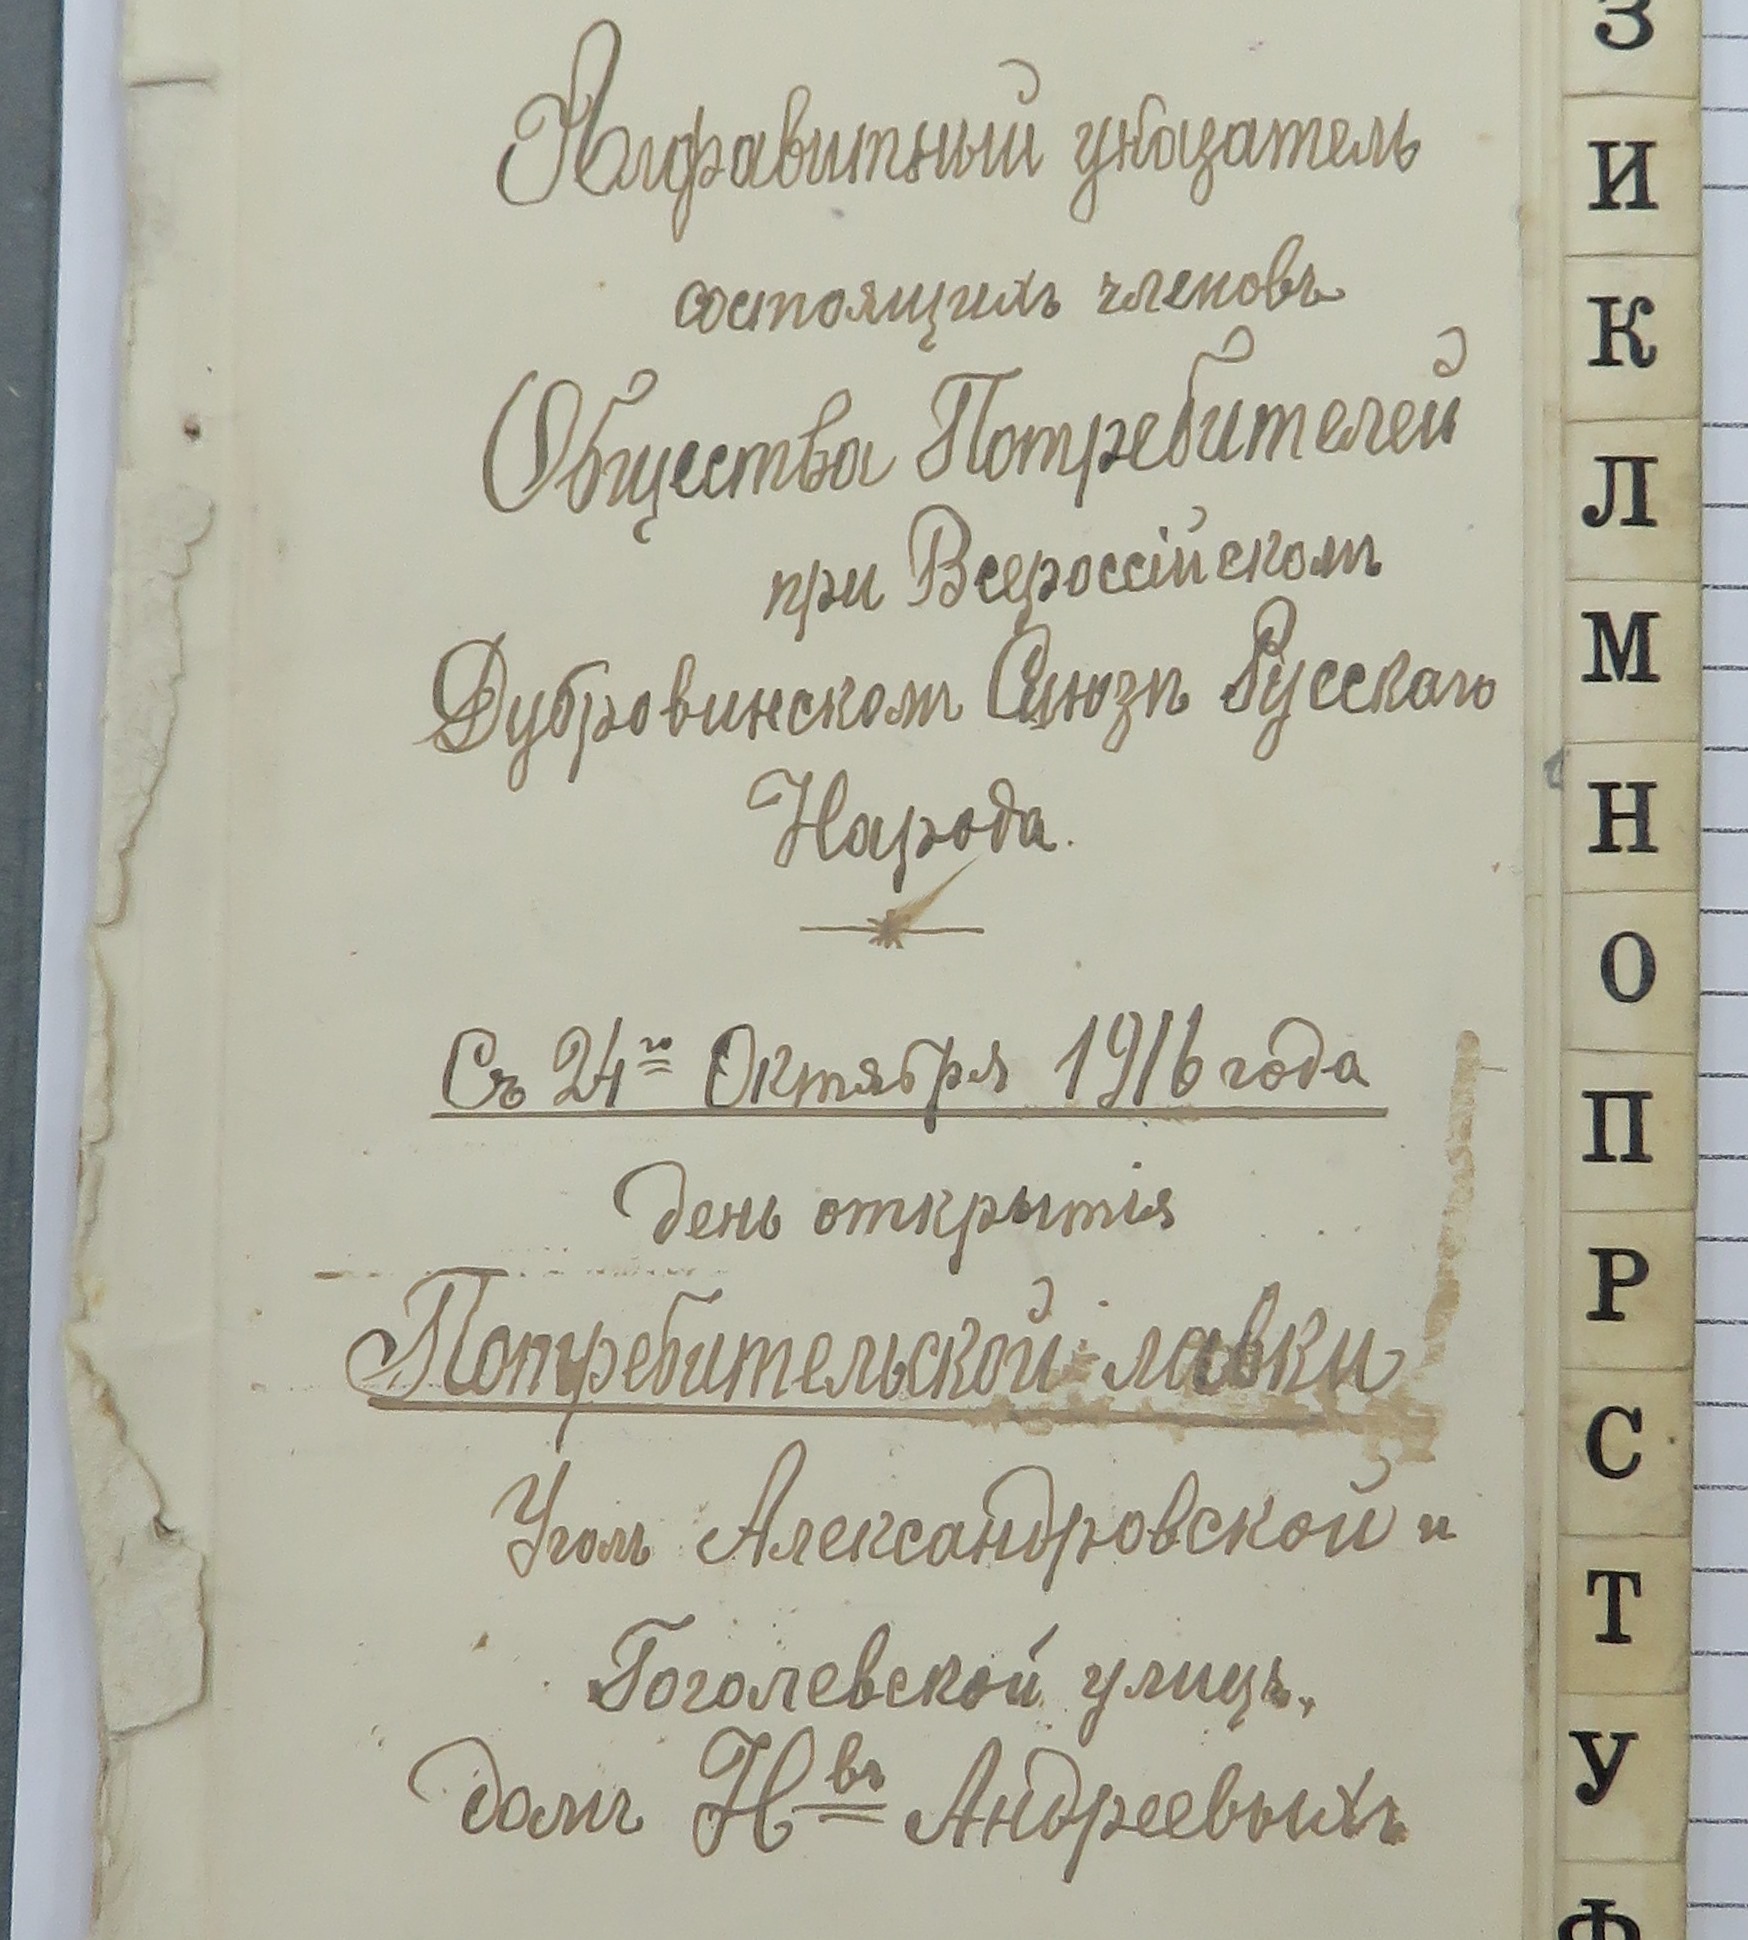 Алфавитный указатель
состоящихъ членовъ
Общества Потребителей
при Всероссійскомъ
Дубровинскомъ Союзѣ Русскаго
Народа.
Съ 24го Октября 1916 года
день открытія
Потребительской лавки
Уголъ Александровской и
Гоголевской улицъ,
домъ Нвъ Андреевыхъ
З
И
К
Л
М
Н
О
П
Р
С
Т
У
Ф